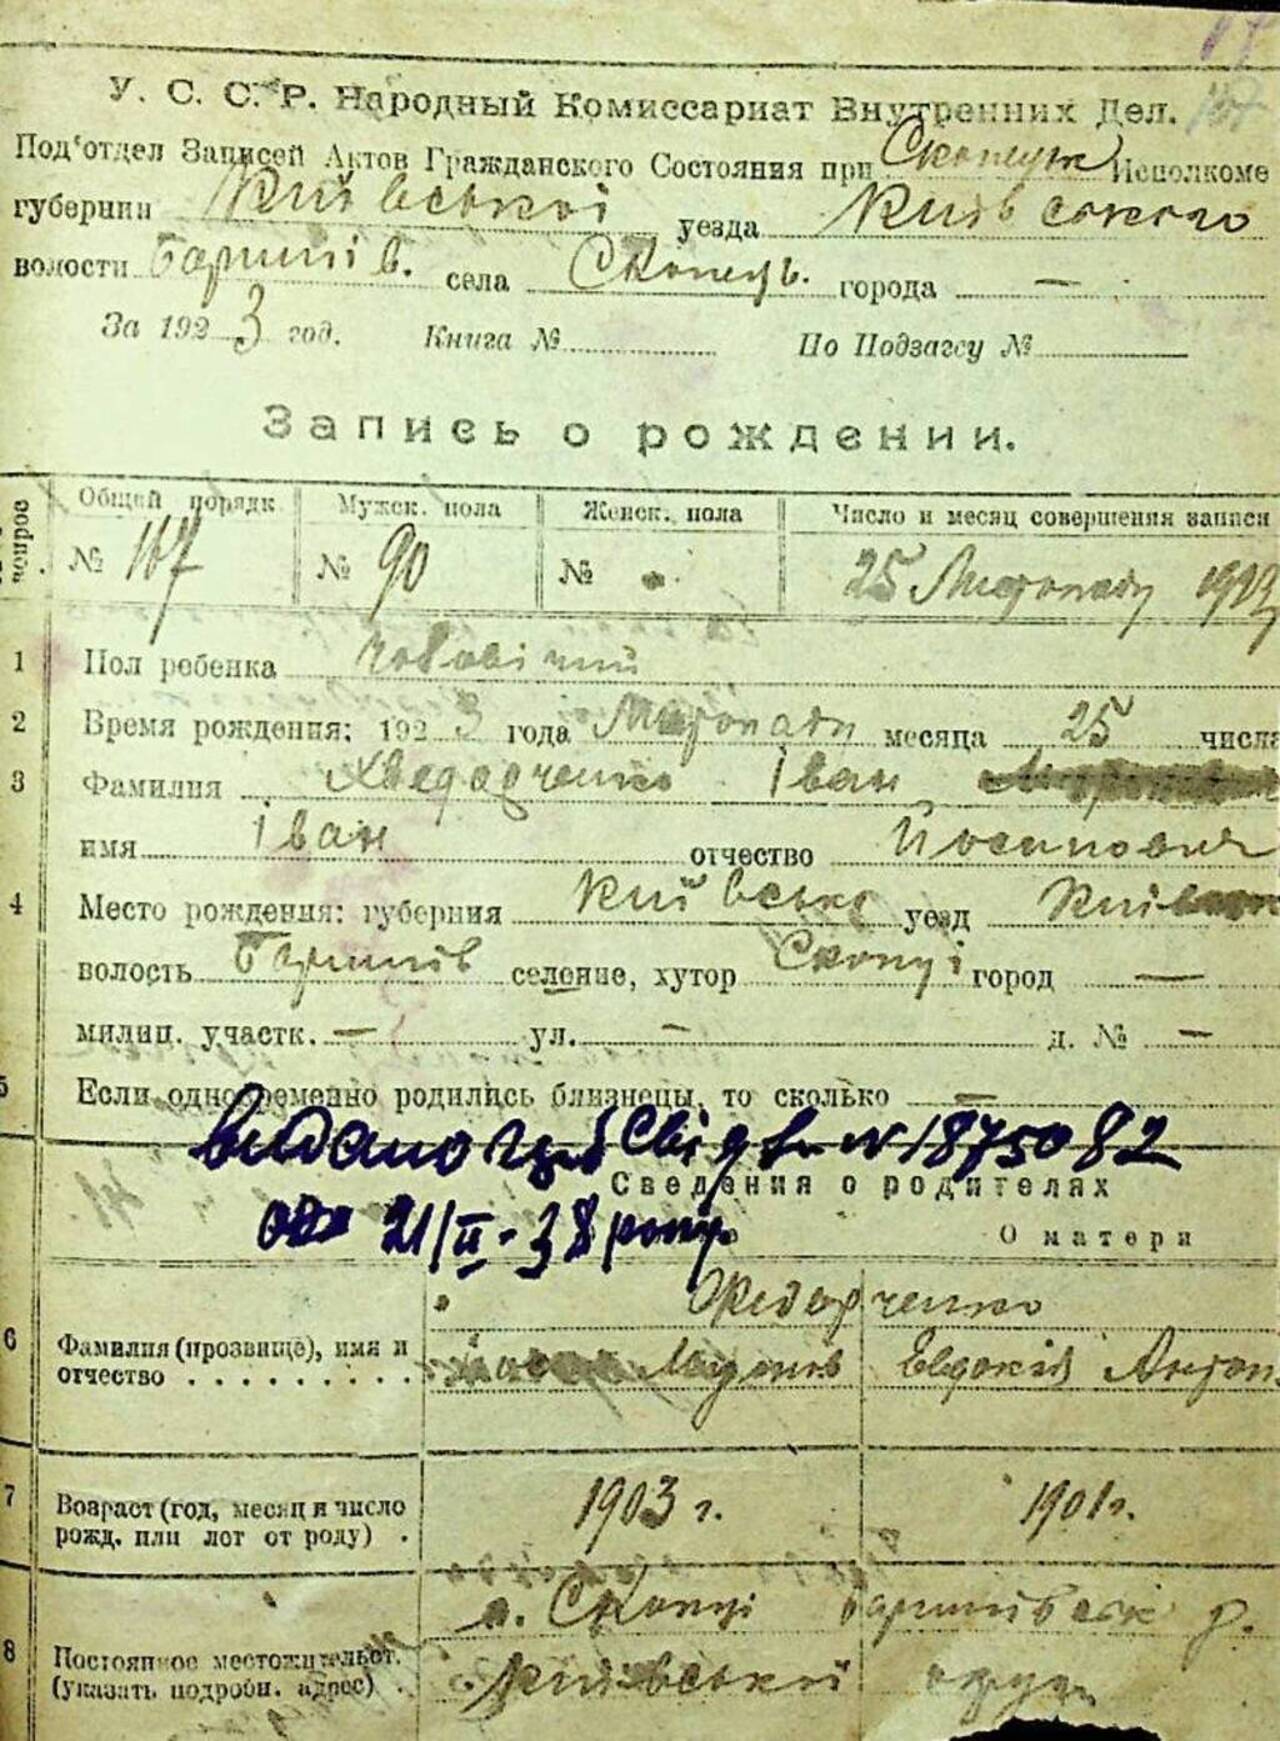 У. С. С. Р. Народный Комиссариат Внутренних Дел.
Под'отдел Записей Актов Гражданского Состояния при Исполкоме
губернии Київської уезда Київського
волости Баришів. села Скопець. города —
За 1923 год. Книга № По Подзагсу №
Запись о рождении.
Общей порядк Мужск. пола Женск. пола Число и месяц совершения записи
№ 167 № 90 № 25 Листопаду 1923
1 Пол ребенка чоловічий
2 Время рождения: 1923 года Листопаду месяца 25 числа
3 Фамилия Хведорченко Іван
имя Іван отчество Йосипович
4 Место рождения: губерния Київська уезд
волость Баришів селение, хутор Скопці город —
милиц. участк. — ул. — д. № —
5 Если одновременно родились близнецы, то сколько —
видано № 1875082
Сведения о родителях
від 21/II-38 року
О матери
Федорченко
6 Фамилия (прозвище), имя и
отчество Евдокія Антон
7 Возраст (год, месяц и число
рожд. или лет от роду) 1903 г. 1901 г.
с. Скопці Баришівськ р.
8 Постоянное местожительст.
(указать подробн. адрес) Київської округ